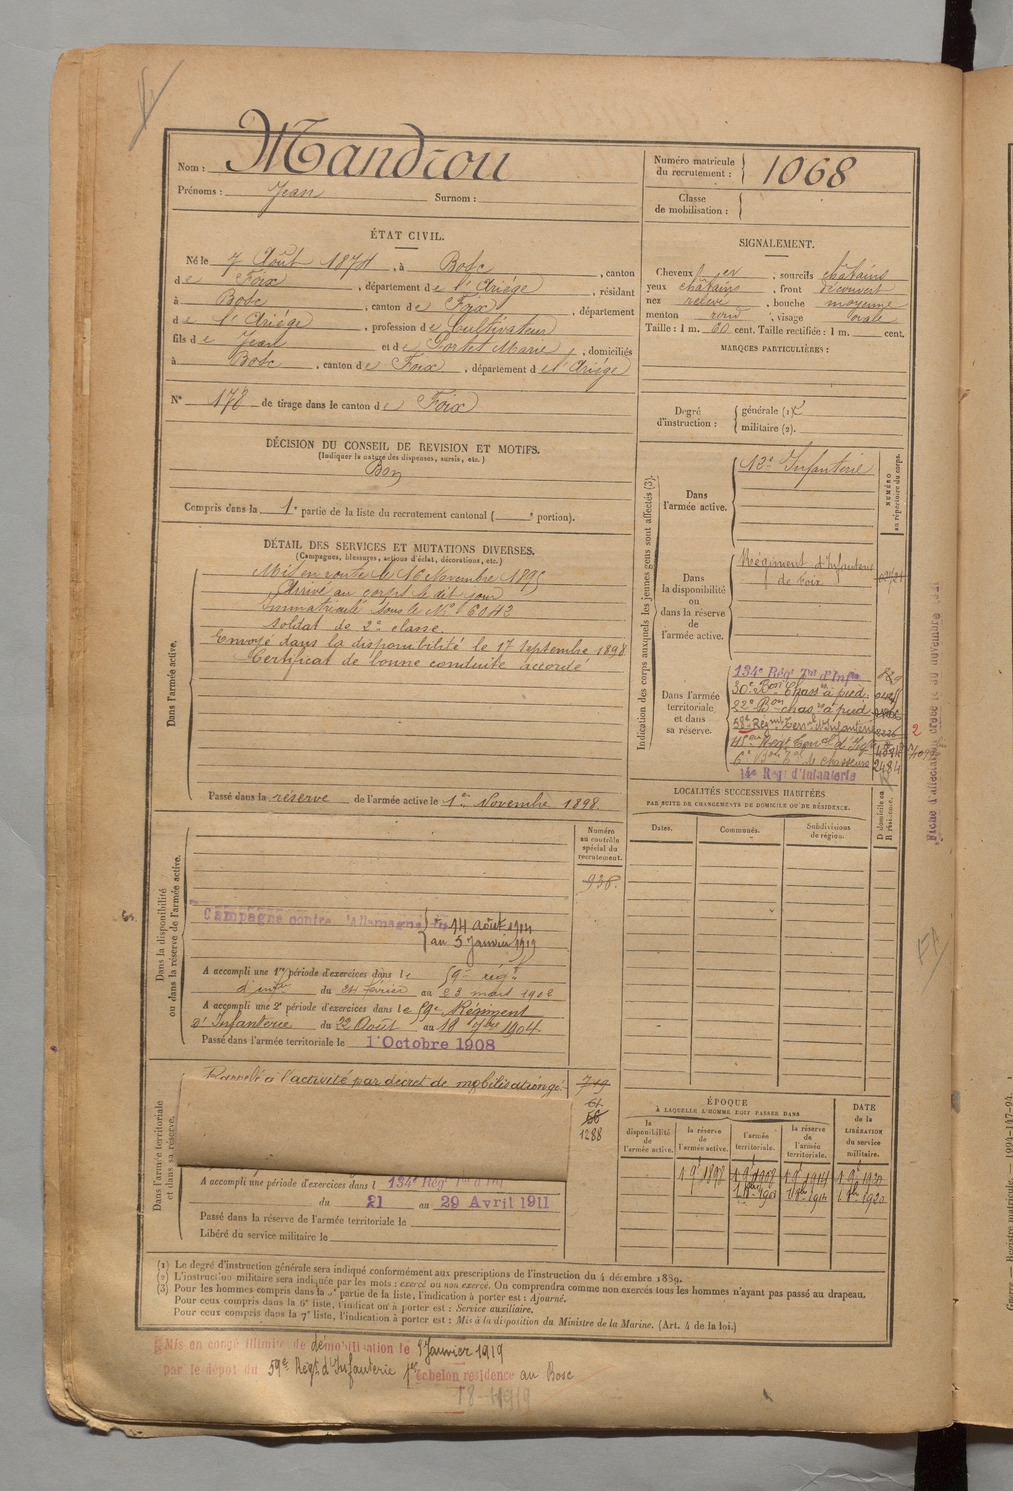 Nom : Mandrou
Prénoms : Jean Surnom :
Numéro matricule du recrutement : 1068
Classe de mobilisation :
ÉTAT CIVIL.
Né le 7 Août 1874, à Bosc, canton
de Foix, département de l'Ariège, résidant
à Bosc, canton de Foix, département
de l'Ariège, profession de Cultivateur
fils de Jean et de Sortet Marie, domiciliés
à Bosc, canton de Foix, département de l'Ariège
N° 178 de tirage dans le canton de Foix
DÉCISION DU CONSEIL DE REVISION ET MOTIFS.
(Indiquer la nature des dispenses, sursis, etc.)
Bon
Compris dans la 1e partie de la liste du recrutement cantonal ( e portion).
SIGNALEMENT.
Cheveux , sourcils châtains
yeux châtains, front découvert
nez relevé, bouche moyenne
menton rond, visage ovale
Taille : 1 m. 60 cent. Taille rectifiée : 1 m. cent.
MARQUES PARTICULIÈRES :
Degré d'instruction : générale (1)
militaire (2).
DÉTAIL DES SERVICES ET MUTATIONS DIVERSES.
(Campagnes, blessures, actions d'éclat, décorations, etc.)
Dans l'armée active.
Mis en route le 16 Novembre 1895
Arrivé au corps le dit jour
Immatriculé sous le N° 6042
soldat de 2e classe.
Envoyé dans la disponibilité le 17 septembre 1898
Certificat de bonne conduite accordé
Passé dans la réserve de l'armée active le 1er Novembre 1898.
Indication des corps auxquels les jeunes gens sont affectés (3).
NUMÉRO au répertoire du corps.
Dans l'armée active.
12e Infanterie
Dans la disponibilité ou dans la réserve de l'armée active.
Régiment d'Infanterie
de Foix
Dans l'armée territoriale et dans sa réserve.
134e Rég.t T.al d'Inf.ie
30e B.on Chass. à pied
22e B.on chas. à pied
58e Rég. Terr. d'Infanterie
6e B.on T.al de chasseurs 2484
14e Rég.t d'Infanterie
LOCALITÉS SUCCESSIVES HABITÉES
PAR SUITE DE CHANGEMENTS DE DOMICILE OU DE RÉSIDENCE.
Dates. Communes. Subdivisions de région. D domicile ou R résidence.
Numéro au contrôle spécial du recrutement.
938.
Dans la disponibilité ou dans la réserve de l'armée active.
Campagne contre l'Allemagne du 14 août 1914
au 5 Janvier 1919
A accompli une 1re période d'exercices dans le 59e rég.t
d'inf.ie du 24 février au 23 mars 1902
A accompli une 2e période d'exercices dans le 59e Régiment
d'Infanterie du 22 Août au 18 7bre 1904
Passé dans l'armée territoriale le 1 Octobre 1908
Dans l'armée territoriale et dans sa réserve.
Rappelé à l'activité par décret de mobilisation gé
719
61
66
1288
A accompli une période d'exercices dans l 134e Rég.t T.al d'Inf
du 21 au 29 Avril 1911
Passé dans la réserve de l'armée territoriale le
Libéré du service militaire le
ÉPOQUE
À LAQUELLE L'HOMME DOIT PASSER DANS
la disponibilité de l'armée active. la réserve de l'armée active. l'armée territoriale. la réserve de l'armée territoriale.
DATE de la LIBÉRATION du service militaire.
1 9bre 1898 1 9bre 1908 1 9bre 1914 1 9bre 1920
1 8bre 1908 1 8bre 1914 1 8bre 1920
(1) Le degré d'instruction générale sera indiqué conformément aux prescriptions de l'instruction du 4 décembre 1889.
(2) L'instruction militaire sera indiquée par les mots : exercé ou non exercé. On comprendra comme non exercés tous les hommes n'ayant pas passé au drapeau.
(3) Pour les hommes compris dans la 5e partie de la liste, l'indication à porter est : Ajourné.
Pour ceux compris dans la 6e liste, l'indication à porter est : Service auxiliaire.
Pour ceux compris dans la 7e liste, l'indication à porter est : Mis à la disposition du Ministre de la Marine. (Art. 4 de la loi.)
Mis en congé illimité de démobilisation le 5 Janvier 1919
par le dépôt du 59e Régt d'Infanterie 1er échelon résidence au Bosc